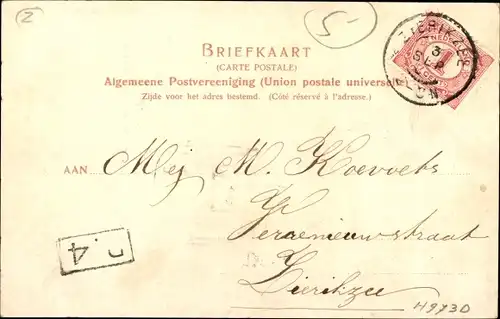 2
5-
BRIEFKAART
(CARTE POSTALE)
Algemeene Postvereeniging (Union postale universelle)
Zijde voor het adres bestemd. (Côté réservé à l'adresse.)
ZIERIKZEE
3
SEP
AAN Mej M. Koevoets
Verrenieuwstraat
Zierikzee
n.4
H973D